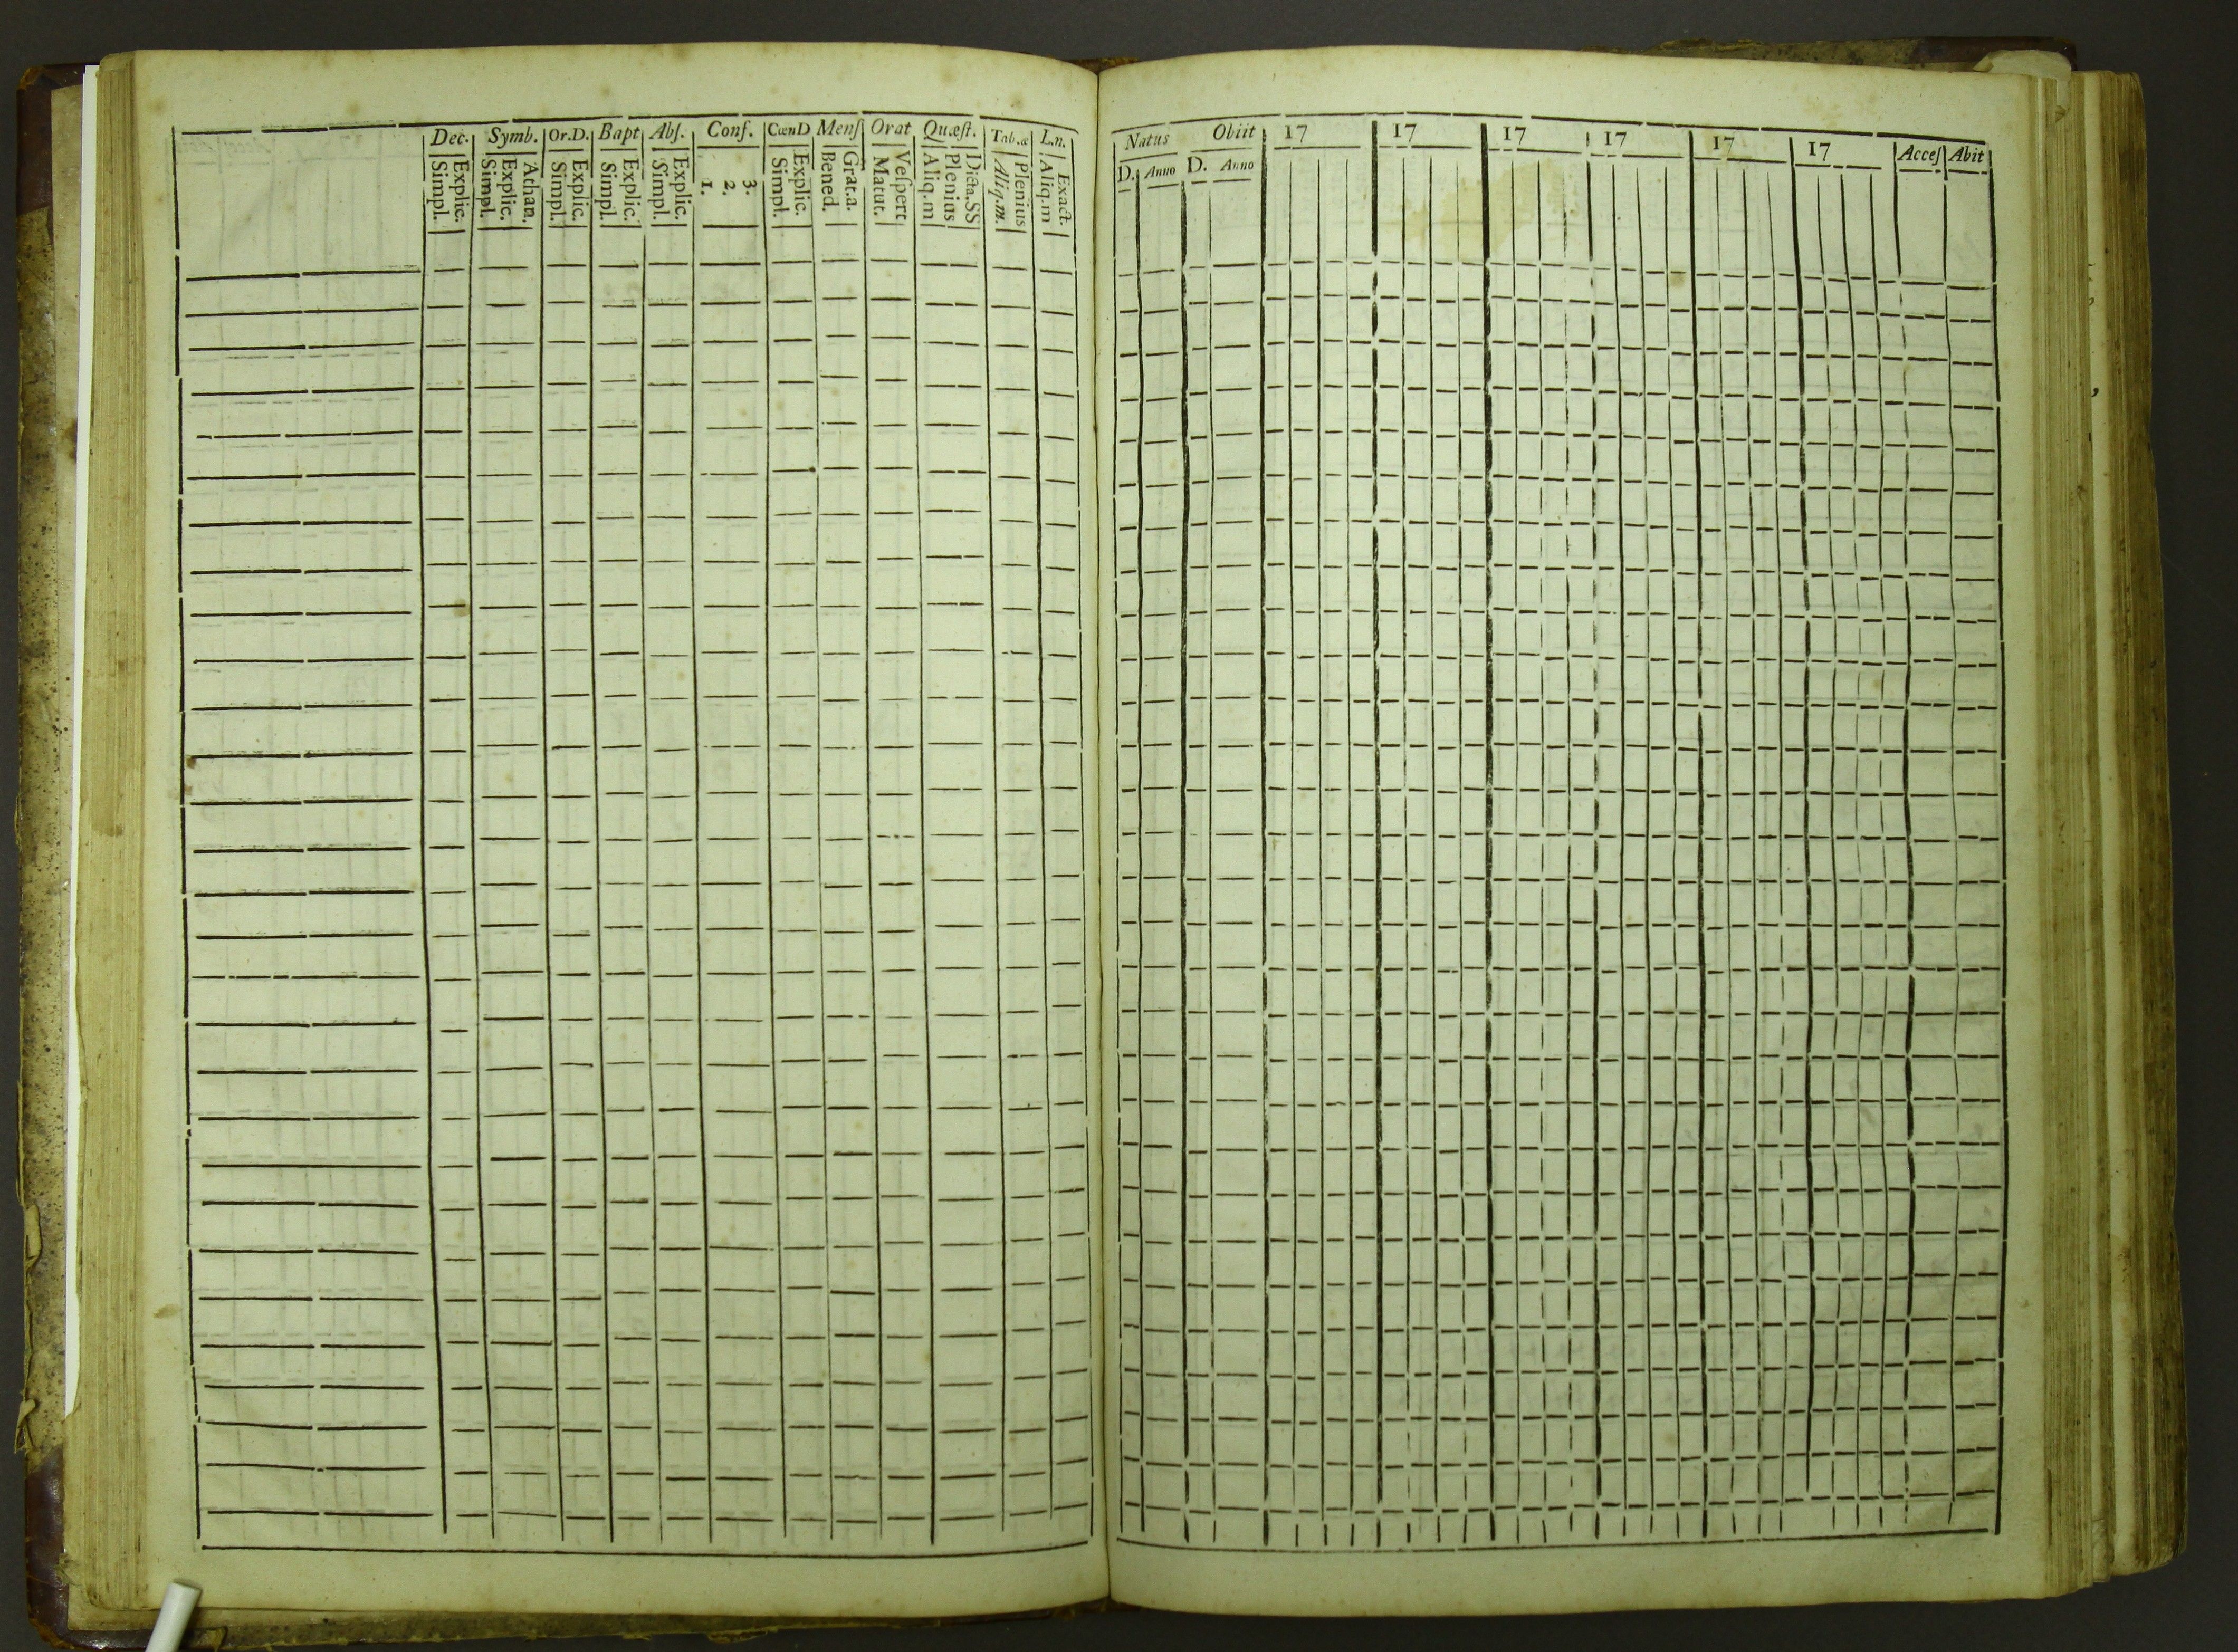 Dec. Symb. Or.D. Bapt Abſ. Conf. CœnD Menſ Orat Quæſt. Tab.æ L.n.
Explic.
Simpl.
Athan.
Explic.
Simpl.
Explic.
Simpl.
Explic.
Simpl.
Explic.
Simpl.
3.
2.
1.
Explic.
Simpl.
Grat.a.
Bened.
Veſpert
Matut.
Dicta.SS
Plenius
Aliq.m
Plenius
Aliq.m.
Exact.
Aliq.m
Natus Obiit 17 17 17 17 17 17 Acceſ Abit
D. Anno D. Anno